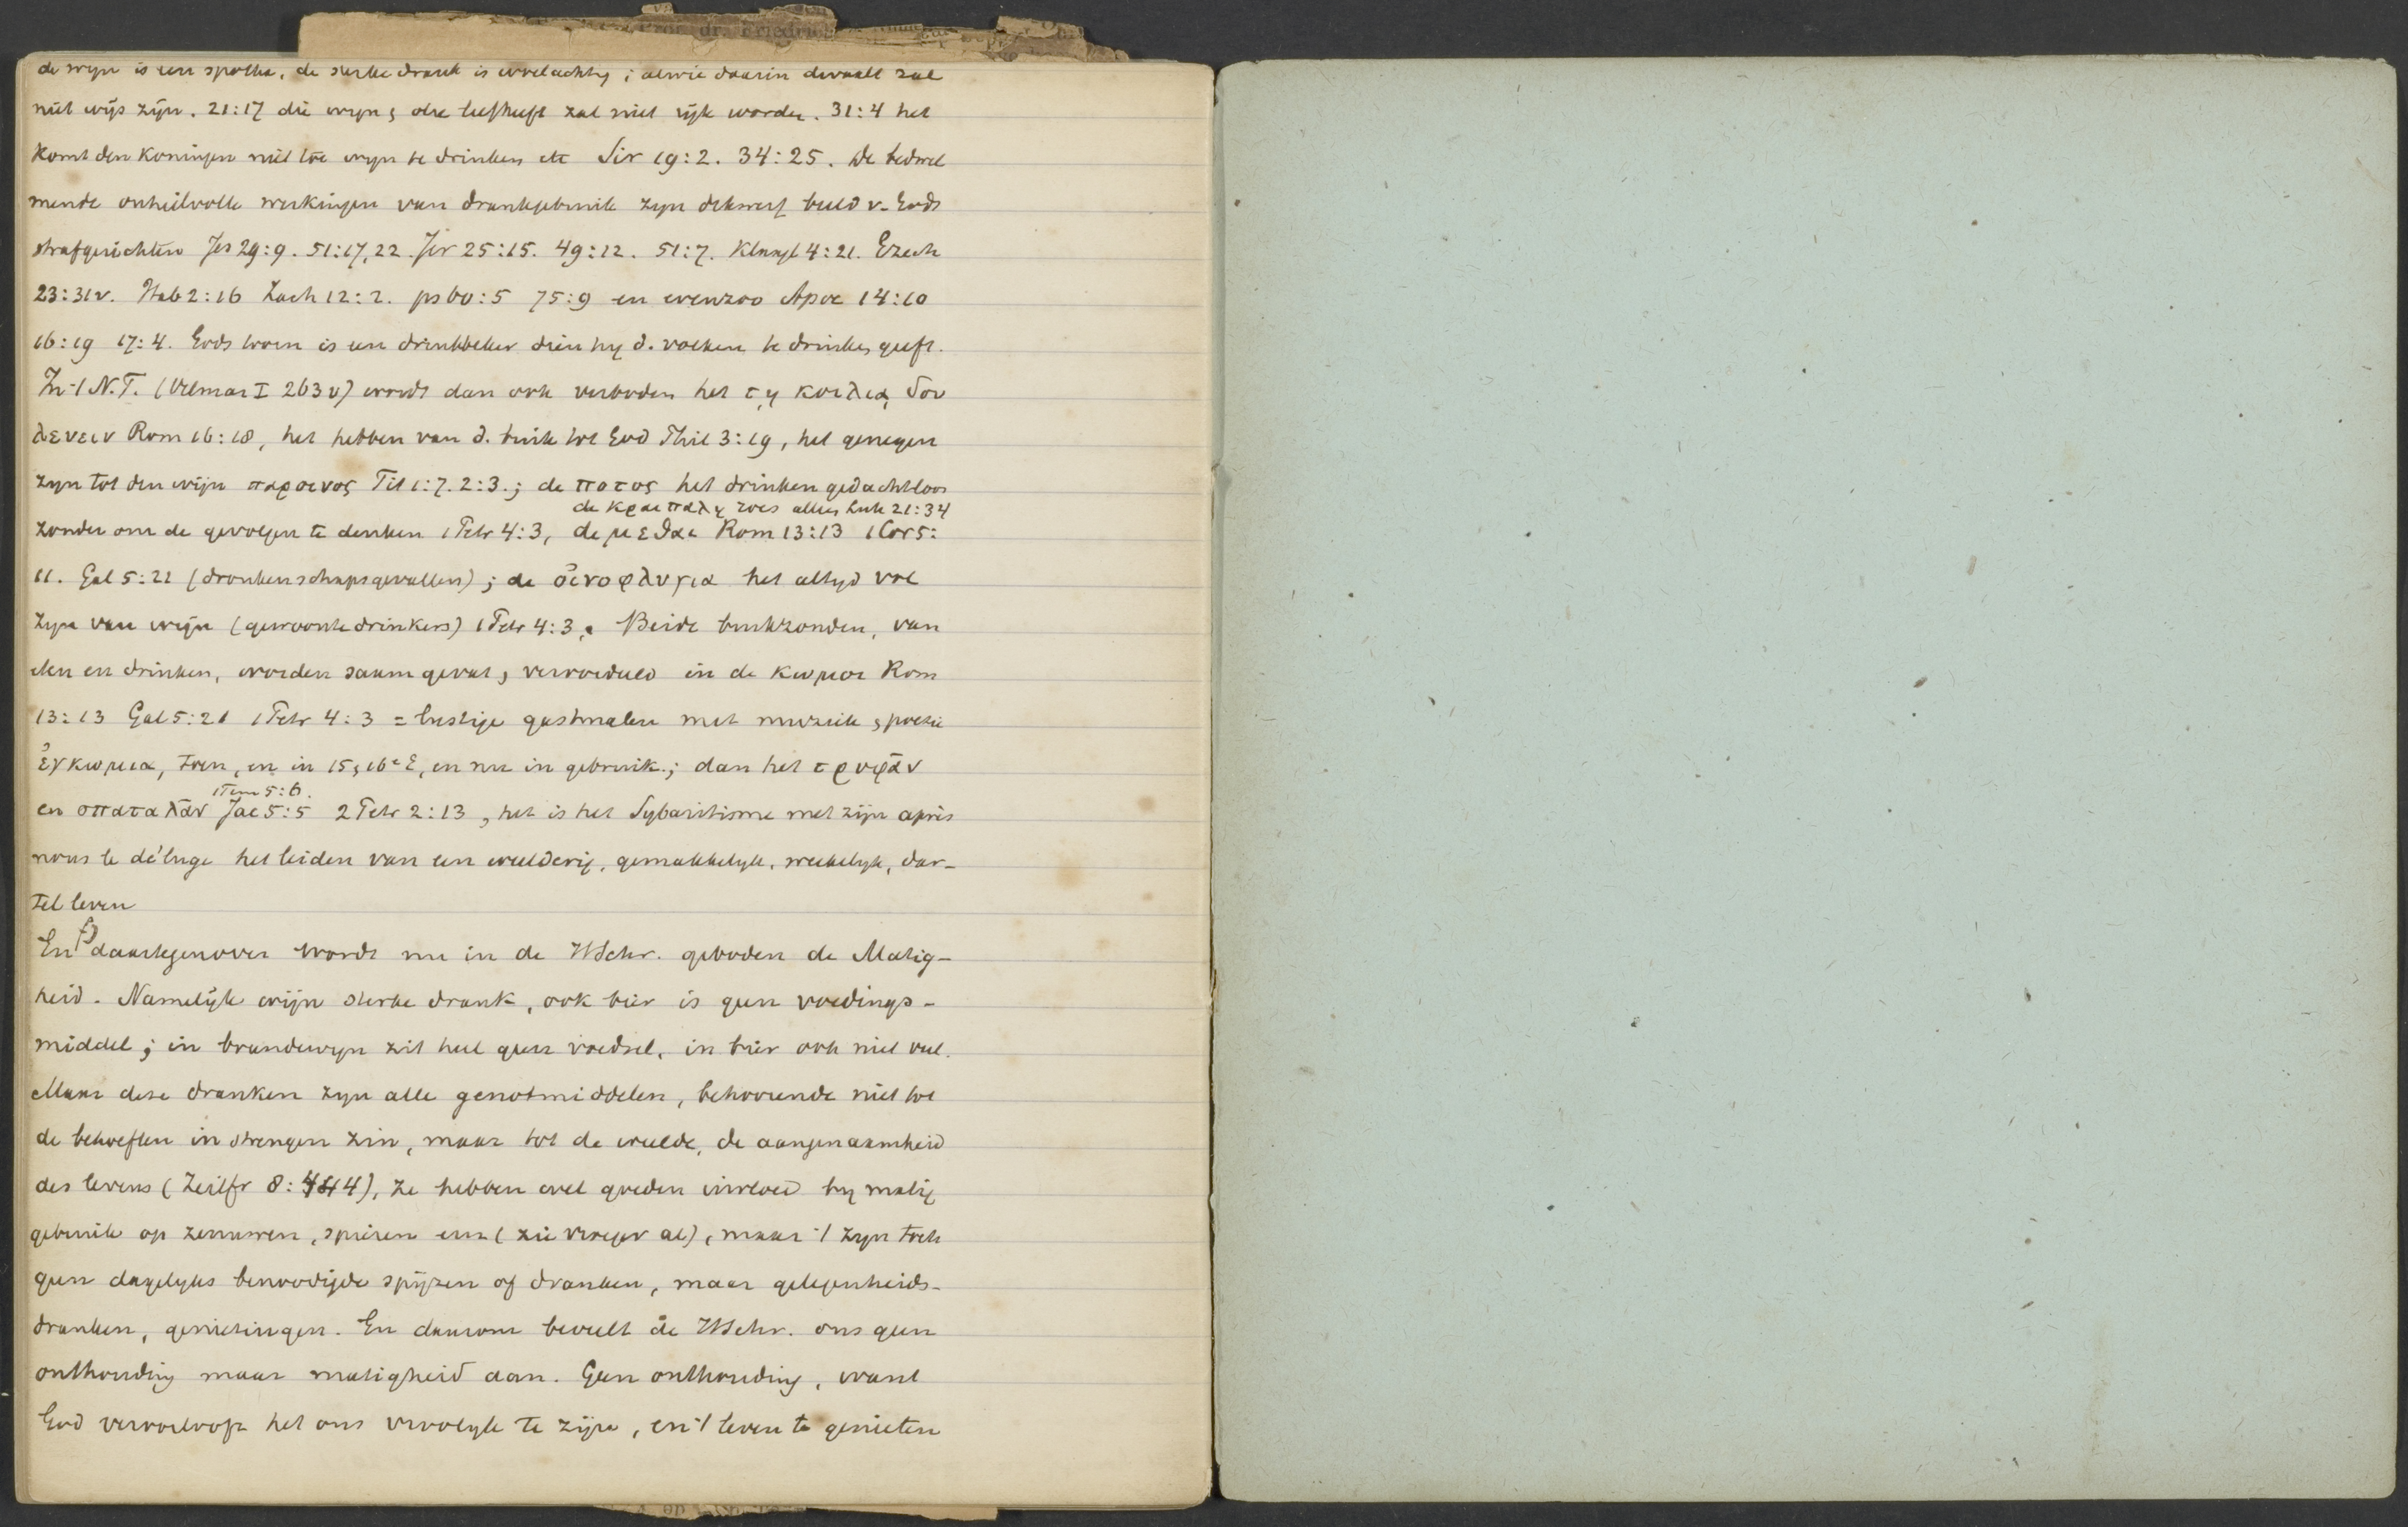 Prof. dr. Friedr
de wijn is een spotter, de sterke drank is woelachtig; alwie daarin dwaalt zal
niet wijs zijn. 21:17 die wijn & olie liefheeft zal niet rijk worden. 31:4 het
komt den koningen niet toe wijn te drinken etc Sir 19:2. 34:25. De bedwel
mende onheilvolle werkingen van drankgebruik zijn dikwerf beeld v. Gods
strafgerichten Jes 29:9. 51:17,22. Jer 25:15. 49:12. 51:7. Klaagl 4:21. Ezech
23:31v. Hab 2:16 Zach 12:2. ps 60:5 75:9 en evenzoo Apoc 14:10
16:19 17:4. Gods toorn is een drinkbeker dien hij d. volken te drinken geeft.
In 't N.T. (Vilmar I 263v) wordt dan ook verboden het τῃ κοιλιᾳ δου
λευειν Rom 16:18, het hebben van d. buik tot God Phil 3:19, het genegen
zijn tot den wijn παροινος Tit 1:7. 2:3.; de ποτος het drinken gedachtloos
de κραιπαλη roes alleen Luk 21:34
zonder om de gevolgen te denken 1 Petr 4:3, de μεθαι Rom 13:13 1 Cor 5:
11. Gal 5:21 (dronkenschapsgevallen); de οἰνοφλυγια het altijd vol
zijn van wijn (gewoontedrinkers) 1 Petr 4:3. Beide buikzonden, van
eten en drinken, worden saamgevat & vereenigd in de κωμοι Rom
13:13 Gal 5:21 1 Petr 4:3 = lustige gastmalen met muziek & poezie
ἐγκωμια, toen, en in 15 & 16e E, en nu in gebruik.; dan het τρυφᾶν
1 Tim 5:6.
en σπαταλᾶν Jac 5:5 2 Petr 2:13, het is het Sybaritisme met zijn après
nous le déluge het leiden van een weelderig, gemakkelijk, weekelijk, dar-
tel leven
En daartegenover wordt nu in de HSchr. geboden de Matig-
heid. Namelijk wijn sterke drank, ook bier is geen voedings-
middel; in brandewijn zit heel geen voedsel, in bier ook niet veel.
Maar deze dranken zijn alle genotmiddelen, behoorende niet tot
de behoeften in strengen zin, maar tot de weelde, de aangenaamheid
des levens (Zeitfr 8:444), ze hebben wel goeden invloed bij matig
gebruik op zenuwen, spieren enz (zie vroeger al), maar 't zijn toch
geen dagelijks benoodigde spijzen of dranken, maar gelegenheids-
dranken, genietingen. En daarom beveelt de HSchr. ons geen
onthouding maar matigheid aan. Geen onthouding, want
God veroorlooft het ons vroolijk te zijn, en 't leven te genieten